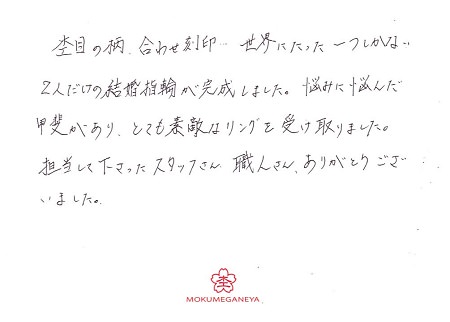 杢目の柄、合わせ刻印… 世界にたった一つしかない
2人だけの結婚指輪が完成しました。悩みに悩んだ
甲斐があり、とても素敵なリングを受け取りました。
担当して下さったスタッフさん、職人さん、ありがとうござ
いました。
MOKUMEGANEYA